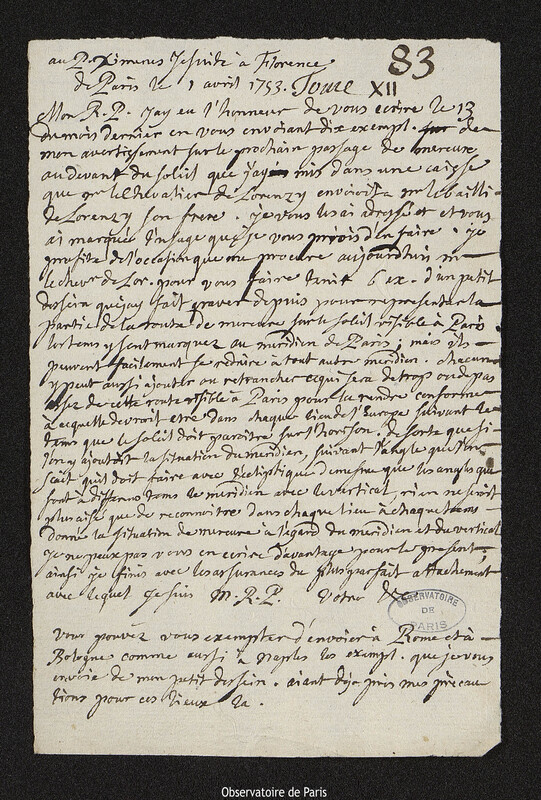 au P. Ximenes Jesuite à Florence
83
de Paris le 1 avril 1753. Tome XII
Mon R. P. J'ay eu l'honneur de vous ecrire le 13
du mois dernier en vous envoiant dix exempl. de
mon avertissement sur le prochain passage de mercure
au devant du soleil que j'ay mis dans une caisse
que Mr le Chevalier de Lorenzy envoioit a Mr le bailli
de Lorenzy son frere. je vous les ai adressé et vous
ai marqué l'usage que je vous priois d'en faire. je
profite de l'occasion que me procure aujourdhui Mr
le chevr de Lor. pour vous faire tenir 6 ex. d'un petit
dessein que j'ay fait graver depuis pour representer la
partie de la route de mercure sur le soleil visible à Paris
les tems y sont marquez au meridien de Paris; mais ils
peuvent facilement se reduire à tout autre meridien. chacun
y peut aussi ajouter ou retrancher ce qui sera de trop ou de pas
assez de cette route visible à Paris pour la rendre conforme
a ce qu'elle devroit etre dans chaque lieu de l'Europe suivant le
tems que le soleil doit paroitre sur l'horison, de sorte que si
l'on y ajoutoit la situation du meridien, suivant l'angle que l'on
scait qu'il doit faire avec l'ecliptique de meme que les angles que
font à differens tems le meridien avec le vertical, rien ne seroit
plus aisé que de reconnoitre dans chaque lieu à chaque tems
donné la situation de mercure à l'egard du meridien et du vertical
Je ne peux pas vous en ecrire davantage pour le present;
ainsi je finis avec les assurances du plus parfait attachement
avec lequel je suis M. R. P. Votre &c
OBSERVATOIRE
DE
PARIS
Vous pouvez vous exempter d'envoier à Rome et à
Bologne comme aussi à Naples les exempl. que je vous
envoie de mon petit dessein. aiant deja pris mes precau
tions pour ces lieux la.
Observatoire de Paris